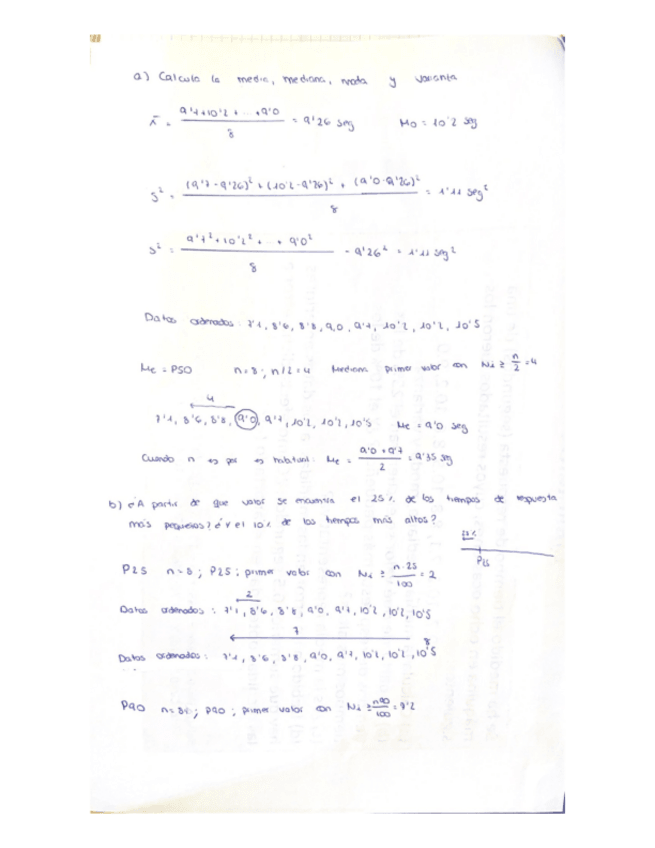 a) Calcula la media, mediana, moda y varianza
x̄ = 9'7+10'2+...+9'0 / 8 = 9'26 seg Mo = 10'2 seg
s² = (9'7-9'26)² + (10'2-9'26)² + (9'0-9'26)² / 8 = 1'11 seg²
s² = 9'7²+10'2²+...+9'0² / 8 - 9'26² = 1'11 seg²
Datos ordenados: 7'1, 8'6, 8'8, 9'0, 9'7, 10'2, 10'2, 10'5
Me = P50 n=8; n/2=4 Mediana primer valor con Ni ≥ n/2 = 4
4
7'1, 8'6, 8'8, 9'0, 9'7, 10'2, 10'2, 10'5 Me = 9'0 seg
Cuando n ⇔ par ⇔ habitual: Me = 9'0+9'7 / 2 = 9'35 seg
b) ¿A partir de que valor se encuentra el 25% de los tiempos de respuesta
más pequeños? ¿Y el 10% de los tiempos más altos?
25%
P25
P25 n=8; P25: primer valor con Ni ≥ n·25/100 = 2
2
Datos ordenados: 7'1, 8'6, 8'8, 9'0, 9'7, 10'2, 10'2, 10'5
7 8
Datos ordenados: 7'1, 8'6, 8'8, 9'0, 9'7, 10'2, 10'2, 10'5
P90 n=8; P90; primer valor con Ni ≥ n90/100 = 7'2